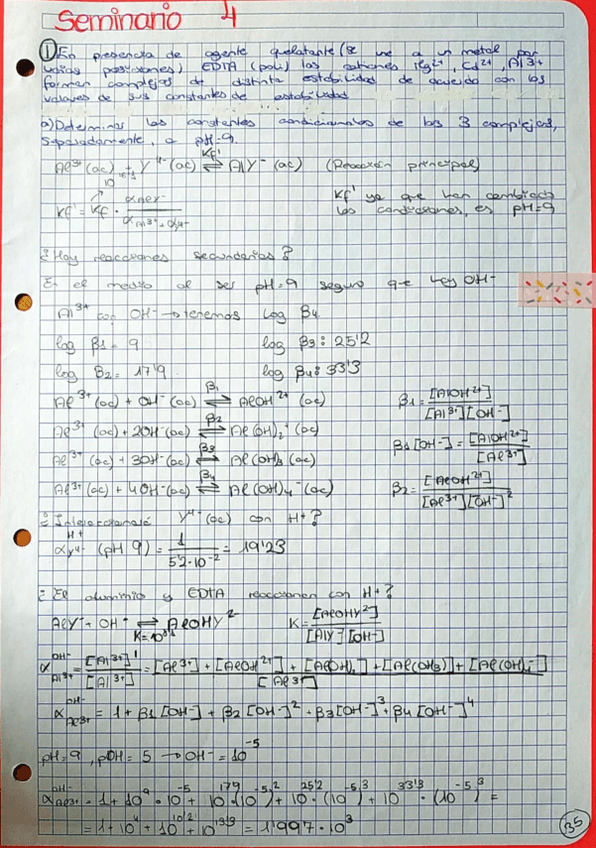 Seminario 4
① En presencia de agente quelatante (se une a un metal por
varias posiciones) EDTA (poli) los cationes Mg²⁺, Cd²⁺, Al³⁺
forman complejos de distinta estabilidad de acuerdo con los
valores de sus constantes de estabilidad
a) Determinar las constantes condicionales de los 3 complejos,
separadamente, a pH=9.
Al³⁺ (ac) + Y⁴⁻ (ac) ⇌ AlY⁻ (ac) (Reacción principal)
Kf'
Kf' = Kf ·
Kf' ya que han cambiado
las condiciones, es pH=9
¿Hay reacciones secundarias?
En el medio al ser pH=9 seguro que hay OH⁻
Al³⁺ con OH⁻ → tenemos log β4
log β1 = 9 log β3: 25'2
log β2 = 17'9 log β4: 33'3
Al³⁺ (ac) + OH⁻ (ac) ⇌ AlOH²⁺ (ac) β1 = [AlOH²⁺] / [Al³⁺][OH⁻]
Al³⁺ (ac) + 2OH⁻ (ac) ⇌ Al(OH)₂⁺ (ac) β1[OH⁻] = [AlOH²⁺] / [Al³⁺]
Al³⁺ (ac) + 3OH⁻ (ac) ⇌ Al(OH)₃ (ac)
Al³⁺ (ac) + 4OH⁻ (ac) ⇌ Al(OH)₄⁻ (ac) β2 = [AlOH²⁺] / [Al³⁺][OH⁻]²
¿Interaccionará Y⁴⁻ (ac) con H⁺?
α H⁺ Y⁴⁻ (pH 9) = 1 / 5'2·10⁻² = 19'23
¿El aluminio y EDTA reaccionan con H⁺?
AlY⁻ + OH⁻ ⇌ AlOHY²⁻ K = [AlOHY²⁻] / [AlY⁻][OH⁻]
α OH⁻ Al³⁺ = [Al³⁺]' / [Al³⁺] = [Al³⁺] + [AlOH²⁺] + [Al(OH)₂] + [Al(OH)₃] + [Al(OH)₄⁻] / [Al³⁺]
α OH⁻ Al³⁺ = 1 + β1 [OH⁻] + β2 [OH⁻]² + β3 [OH⁻]³ + β4 [OH⁻]⁴
pH=9, pOH = 5 → OH⁻ = 10⁻⁵
α OH⁻ Al³⁺ = 1 + 10⁹ · 10⁻⁵ + 10¹⁷'⁹ (10⁻⁵)² + 10²⁵'² · (10⁻⁵)³ + 10³³'³ · (10⁻⁵)³ =
= 1 + 10⁴ + 10¹⁰'² + 10¹³'³ = 1'997 · 10³
35